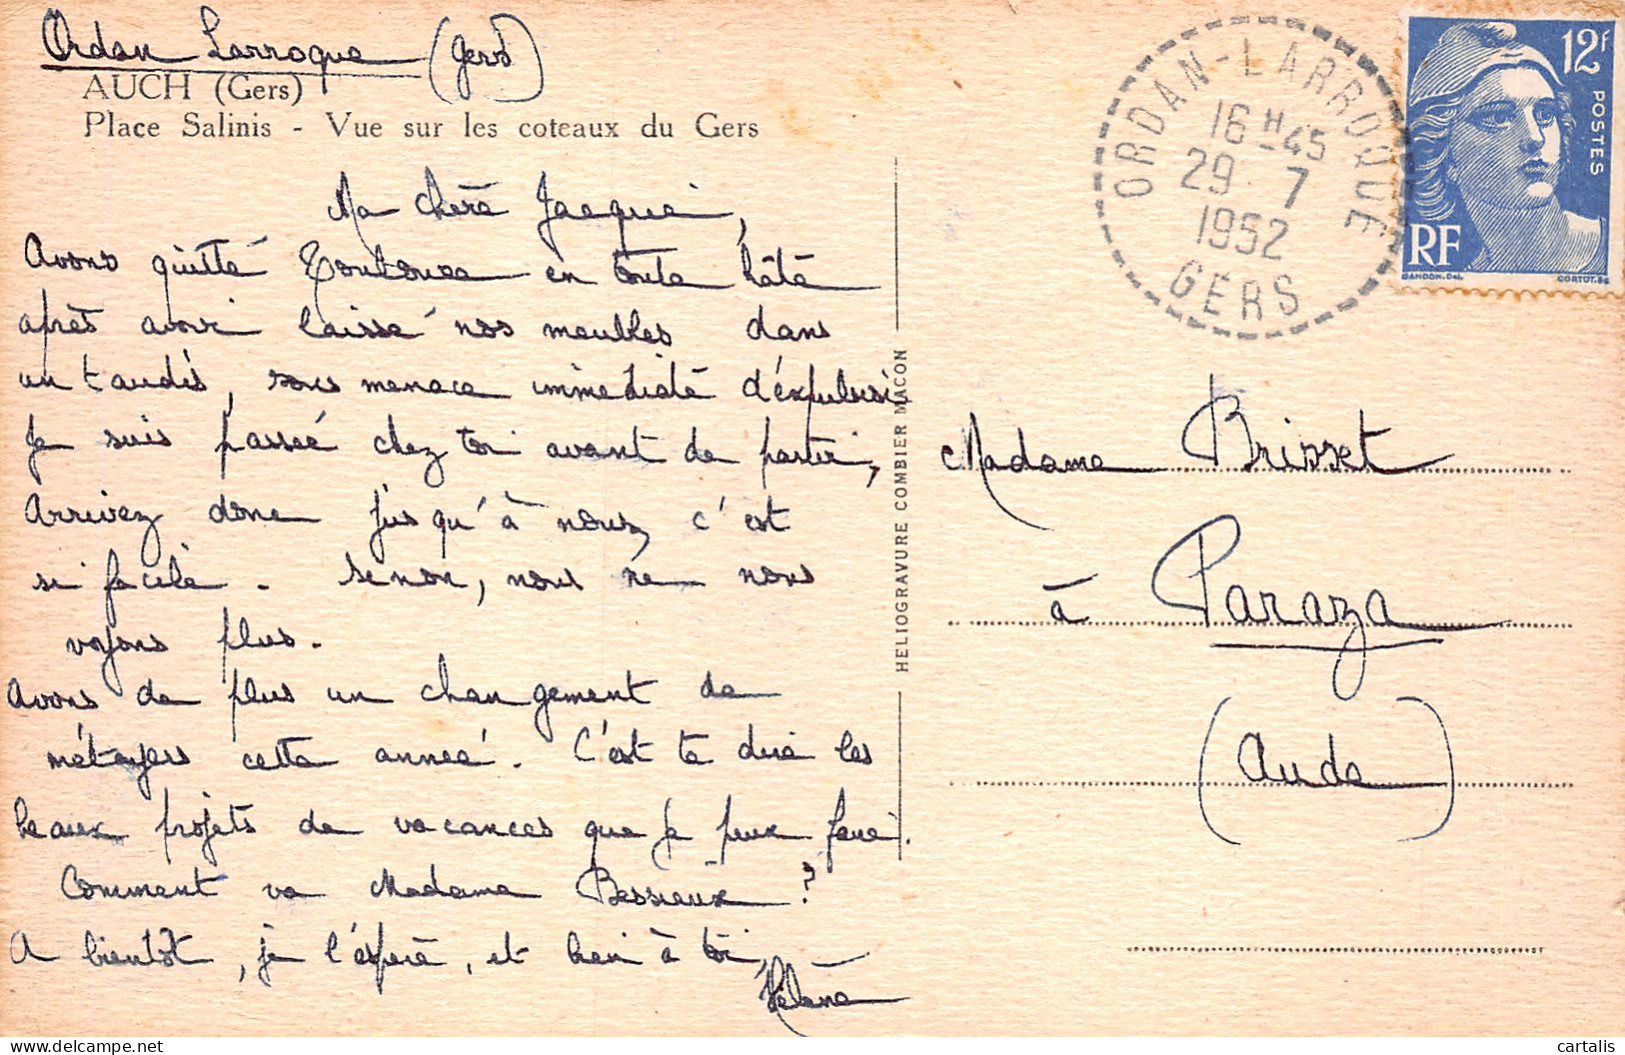 Ordan Larroque (Gers)
AUCH (Gers)
Place Salinis - Vue sur les coteaux du Gers
Ma chère Jacquie,
Avons quitté Toulouse en toute hâte
après avoir laissé nos meubles dans
un taudis, sous menace immédiate d'expulsion
Je suis passée chez toi avant de partir,
Arrivez donc jusqu'à nous, c'est
si facile. Sinon, nous ne nous
voyons plus.
Avons de plus un changement de
métayers cette année. C'est te dire les
beaux projets de vacances que je peux faire.
Comment va Madame Bessieux ?
A bientôt, je l'espère, et bien à toi,
Hélène
HELIOGRAVURE COMBIER MACON
ORDAN-LARROQUE
16 H 45
29 - 7
1952
GERS
12F
POSTES
RF
GANDON.DEL
CORTOT.SC
Madame Brisset
à Paraza
(Aude)
delcampe.net
cartalis